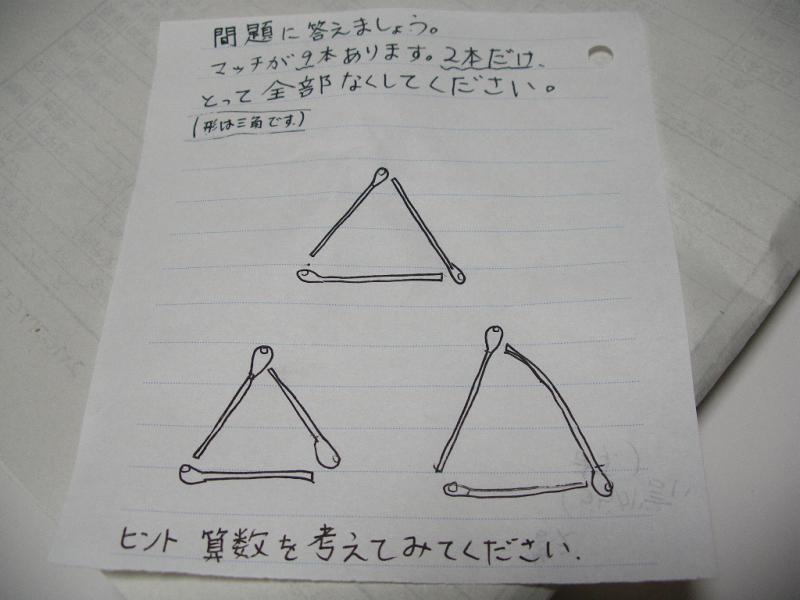 問題に答えましょう。
マッチが9本あります。2本だけ、
とって全部なくしてください。
(形は三角です。)
ヒント 算数を考えてみてください.